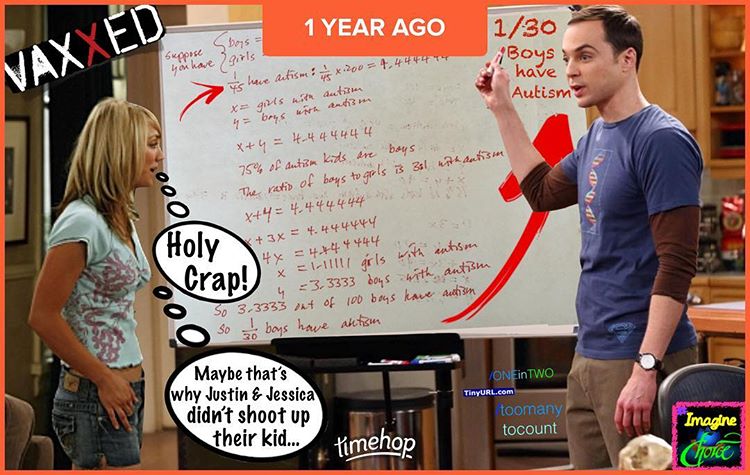 VAXXED
1 YEAR AGO
1/30
Boys
have
Autism
suppose
you have
boys =
girls
1/45 have autism: 1/45 x 200 = 4.444444
x = girls with autism
y = boys with autism
x + y = 4.444444
75% of autism kids are boys
The ratio of boys to girls is 3:1 with autism
x + y = 4.444444
x + 3x = 4.444444
4x = 4.444444
x = 1.11111 girls with autism
y = 3.3333 boys with autism
So 3.3333 out of 100 boys have autism
So 1/30 boys have autism
Holy
Crap!
Maybe that's
why Justin & Jessica
didn't shoot up
their kid...
timehop
/ONEinTWO
TinyURL.com
/toomany
tocount
Imagine
Choice